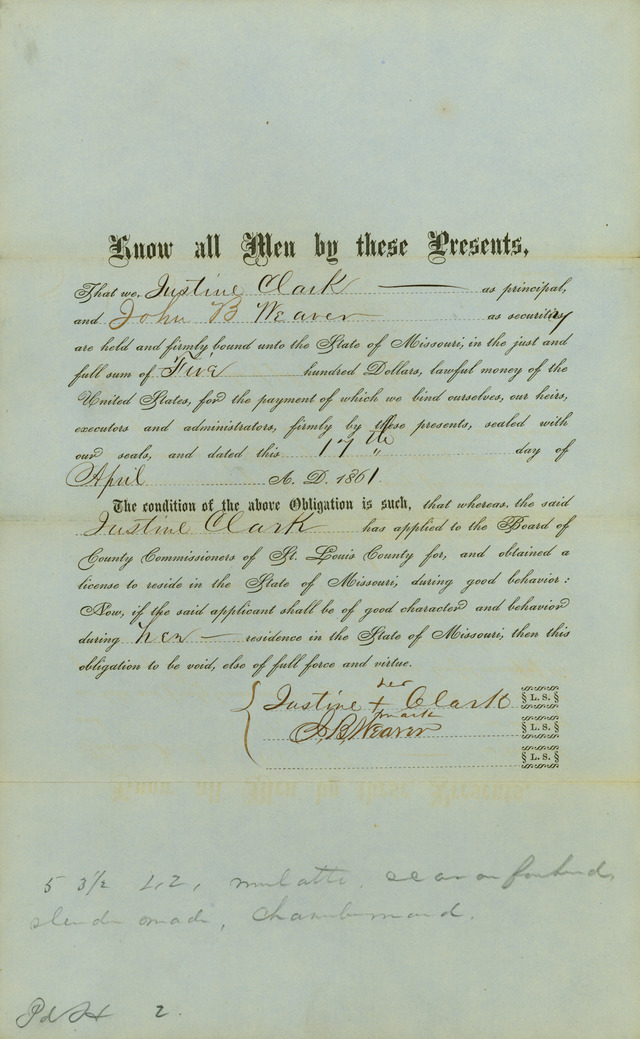 Know all Men by these Presents,
That we, Justine Clark as principal,
and John B Weaver as security
are held and firmly bound unto the State of Missouri, in the just and
full sum of Five hundred Dollars, lawful money of the
United States, for the payment of which we bind ourselves, our heirs,
executors and administrators, firmly by these presents, sealed with
our seals, and dated this 17th day of
April A. D. 1861.
The condition of the above Obligation is such, that whereas, the said
Justine Clark has applied to the Board of
County Commissioners of St. Louis County for, and obtained a
license to reside in the State of Missouri, during good behavior:
Now, if the said applicant shall be of good character and behavior
during her residence in the State of Missouri, then this
obligation to be void, else of full force and virtue.
her
Justine + Clark § L. S. §
mark
J. B. Weaver § L. S. §
§ L. S. §
5 3½ mulatto, scar on forehead,
slender made, chambermaid.
2.